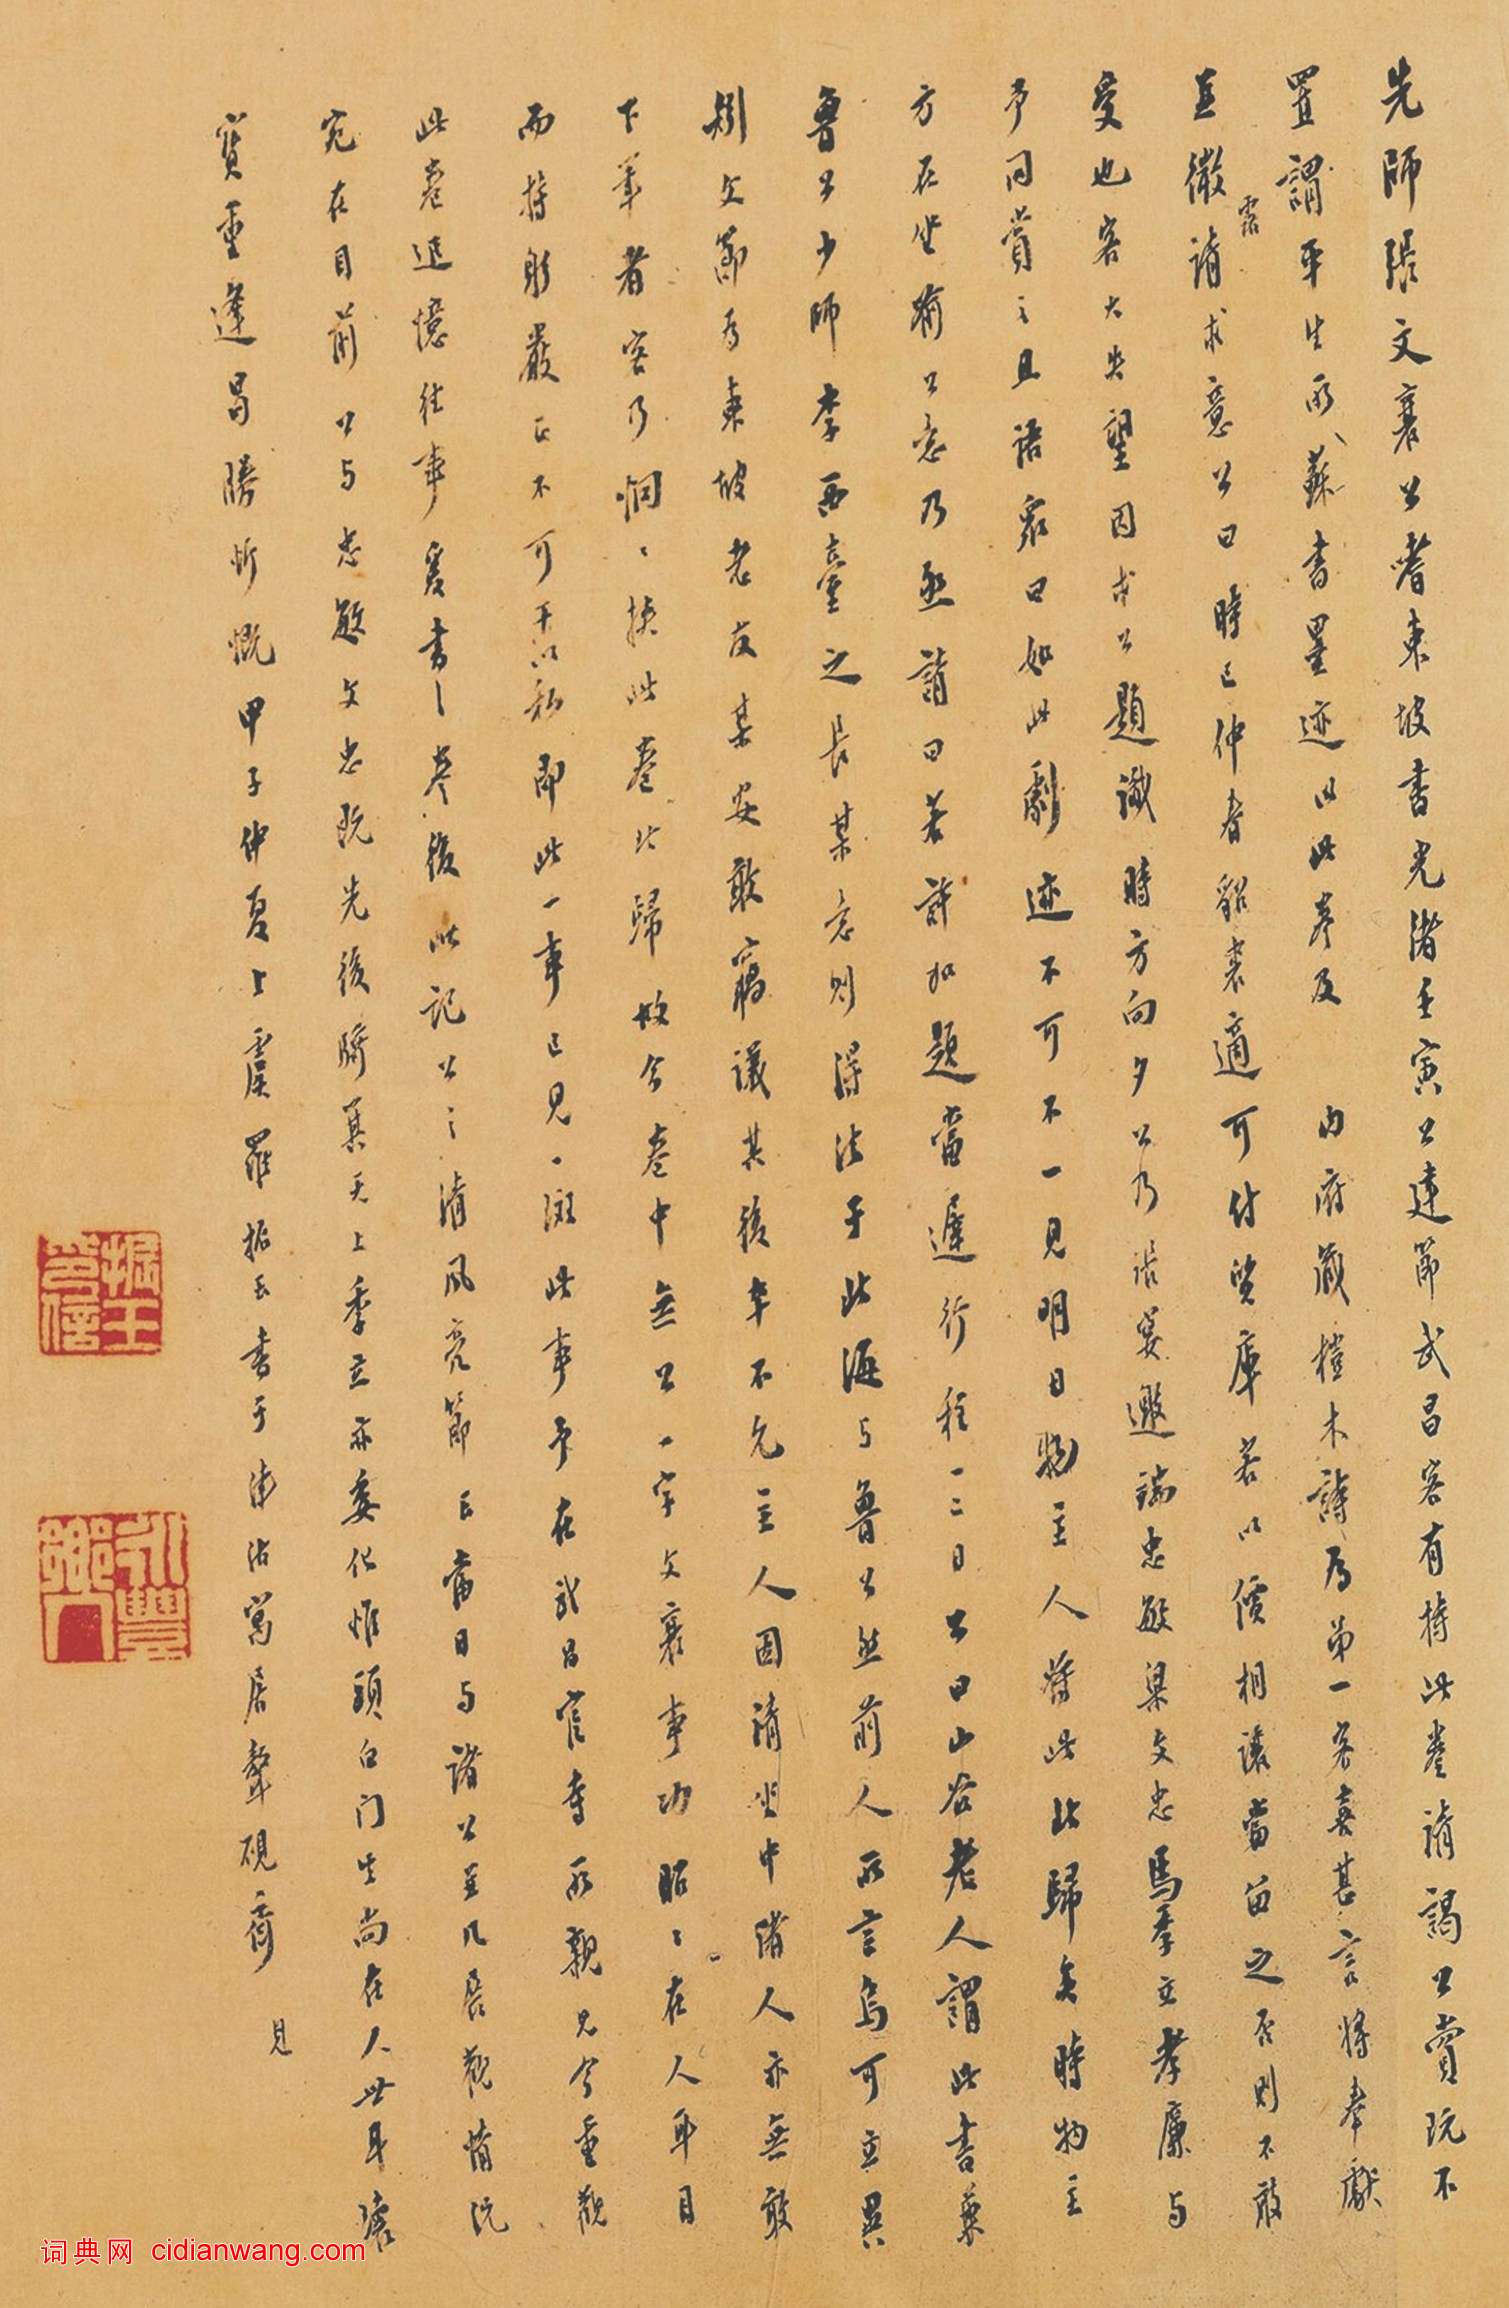 先師張文襄公嗜東坡書光緒壬寅公建節武昌客有持此卷請謁公賞玩不
置謂平生所見蘇書墨迹以此卷及內府藏橙木詩為第一客喜甚言將奉獻
並微露請求意公曰時已仲春貂裘適可付質庫若以價相讓當留之否則不敢
受也客大失望因求公題識時方向夕公乃張宴邀端忠敏梁文忠馬季立孝廉與
予同賞之且語眾曰如此劇迹不可不一見明日物主人將此北歸矣時物主
方在坐喻公意乃亟請曰若許加題當遲行程一二日公曰山谷老人謂此書兼
魯公少師李西臺之長某意則得法于北海與魯公然前人所言烏可立異
別文節為東坡老友某安敢竊議其後卒不允主人固請坐中諸人亦無敢
下筆者客乃惘惘挾此卷北歸故今卷中無公一字文襄事功昭昭在人耳目
而持躬嚴正不可干以私即此一事已見一斑此事予在武昌官寺所親見今重觀
此卷追憶往事爰書卷後以記公之清風亮節已當日與諸公並几展觀情況
宛在目前公與忠敏文忠既先後騎箕天上季立亦委化惟頭白門生尚在人世耳噫
寶重逢曷勝忻慨甲子仲夏上虞羅振玉書于津沽寓居聱硯齋
見
振玉印信
永豐鄉人
词典网 cidianwang.com